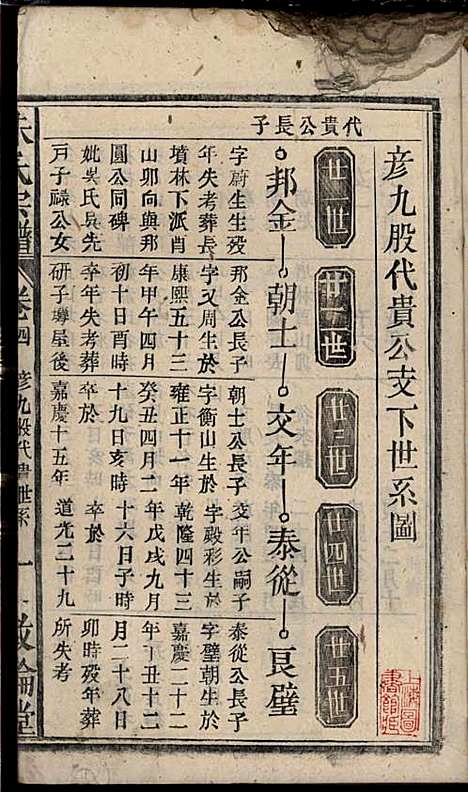 彦九股代貴公支下世系圖
廿一世
廿二世
廿三世
廿四世
廿五世
代貴公長子
邦金
朝士
交年
泰從
良璧
字蔚生生歿
年失考葬長
墳林下派肖
山卯向與邦
圓公同碑
妣吳氏見先
戸子祿公女
邦金公長子
字又周生於
康熙五十三
年甲午四月
初十日酉時
卒年失考葬
研子塆屋後
朝士公長子
字衡山生於
雍正十一年
癸丑四月二
十九日亥時
卒於
嘉慶十五年
交年公嗣子
字殿彩生於
乾隆四十三
年戊戌九月
十六日子時
卒於
道光二十九
泰從公長子
字璧朝生於
嘉慶二十二
年丁丑十二
月二十八日
卯時歿年葬
所失考
氏宗譜
卷四
彦九股代貴世系
一
敦倫堂
上海圖書館藏